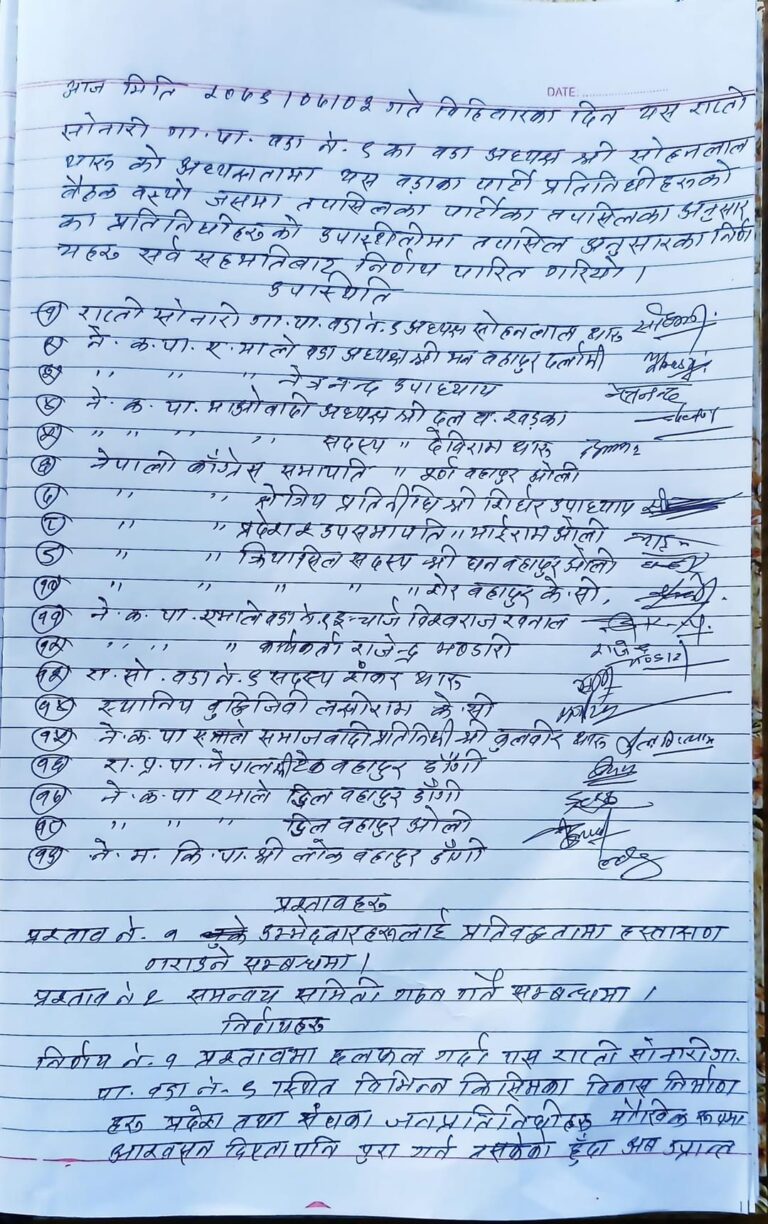 DATE:
आज मिति २०७९/०७/०३ गते विहिवारका दिन यस राप्ती
सोनारी गा.पा. वडा नं. ९ का वडा अध्यक्ष श्री सोहनलाल
थारु को अध्यक्षतामा यस वडाका पार्टी प्रतिनिधीहरुको
बैठक वस्यो जसमा तपासिलका पार्टीका तपासिलका अनुसार
का प्रतिनिधीहरुको उपस्थितीमा तपासिल अनुसारका निर्ण
यहरु सर्व सहमतिबाट निर्णय पारित गरियो।
उपास्थिति
१ राप्ती सोनारी गा.पा. वडा नं. ९ अध्यक्ष सोहनलाल थारु
२ ने.क.पा. ए.माले वडा अध्यक्ष श्री मन वहादुर दर्लामी
३ " " " नेत्रनन्द उपाध्याय नेत्रनन्द
४ ने.क.पा. माओवादी अध्यक्ष श्री दल व. खड्का
५ " " " " सदस्य " देविराम थारु
६ नेपाली काँग्रेस सभापति " पूर्ण वहादुर ओली
७ " " क्षेत्रिय प्रतिनीधि श्री गिर्धर उपाध्याय
८ " " प्रदेश २ उपसभापति " भाईराम ओली
९ " " क्रियासिल सदस्य श्री धन वहादुर ओली
१० " " " " " शेर वहादुर के.सी.
११ ने.क.पा. एमाले वडा नं. ९ इन्चार्ज विश्वराज खनाल
१२ " " " " कार्यकर्ता राजेन्द्र भण्डारी
१३ रा.सो. वडा नं. ९ सदस्य शंकर थारु
१४ स्थानिय वुद्धिजिवी तसीराम के.सी
१५ ने.क.पा एमाले समाजवादी प्रतिनिधी श्री कुलवीर थारु
१६ रा.प्र.पा. नेपाल टेक वहादुर डाँगी
१७ ने.क.पा एमाले दिल वहादुर डाँगी
१८ " " " दिल वहादुर ओली
१९ ने.म.कि.पा. श्री लोक वहादुर डाँगी
प्रस्तावहरु
प्रस्ताव नं. १ उम्मेदवारहरुलाई प्रतिवद्धतामा हस्ताक्षण
गराउने सम्बन्धमा।
प्रस्ताव नं २ समन्वय समिती गठन गर्ने सम्बन्धमा।
निर्णयहरु
निर्णय नं. १ प्रस्तावमा छलफल गर्दा यस राप्ती सोनारी गा.
पा. वडा नं. ९ स्थित विभिन्न किसिमका विकास निर्माण
हरु प्रदेश तथा संघका जनप्रतिनिधीहरु मौखिक रुपमा
आश्वसन दिएतापनि पुरा गर्न नसकेको हुँदा अब उप्रान्त